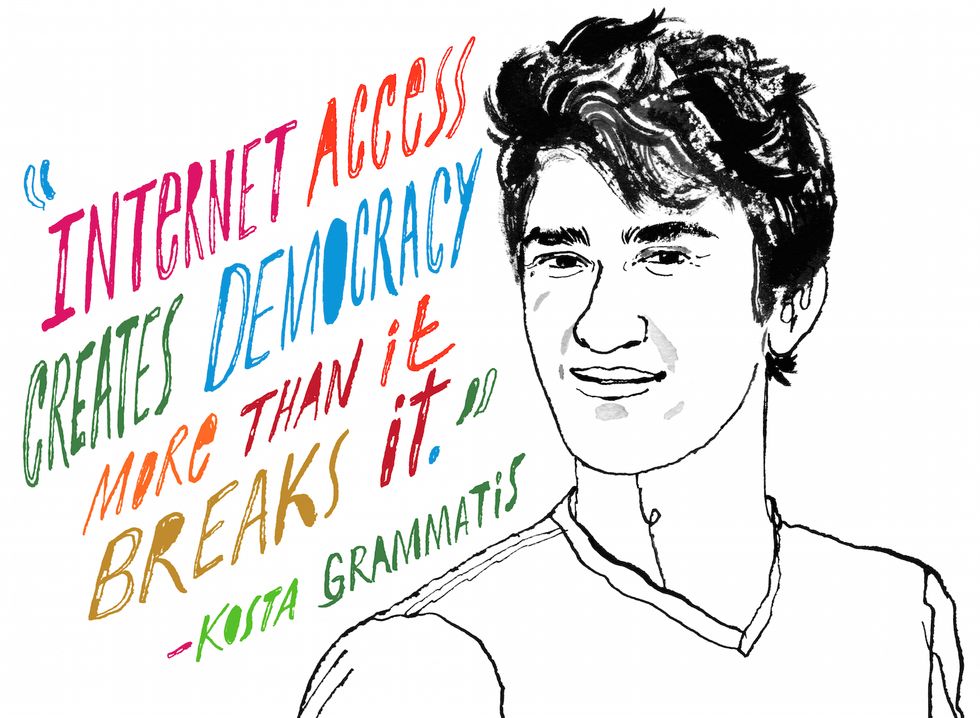 “INTERNET ACCESS
CREATES DEMOCRACY
MORE THAN it
BREAKS it.”
-KOSTA GRAMMATiS